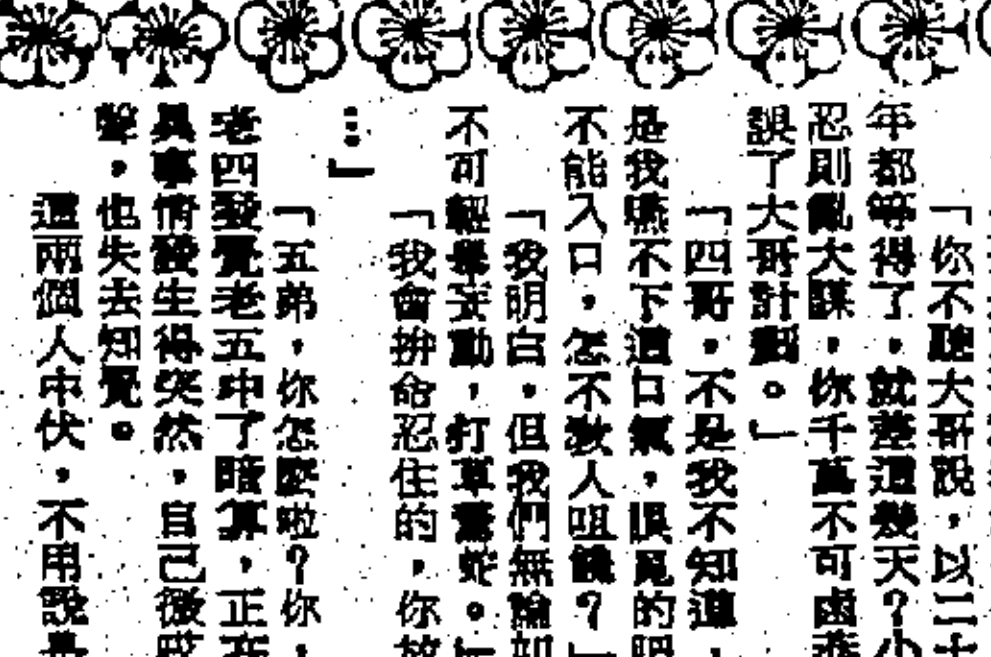 「你不聽大哥說，以二十
年都等得了，就差這幾天？小
忍則亂大謀，你千萬不可鹵莽
誤了大哥計劃。」
「四哥，不是我不知道，
是我嚥不下這口氣，眼見的肥
不能入口，怎不教人咀饞？」
「我明白，但我們無論如
不可輕舉妄動，打草驚蛇。」
「我會拚命忍住的，你放
…」
「五弟，你怎麼啦？你，
老四發覺老五中了暗算，正在
異事情發生得突然，自己微
聲，也失去知覺。
這兩個人中伏，不用說是